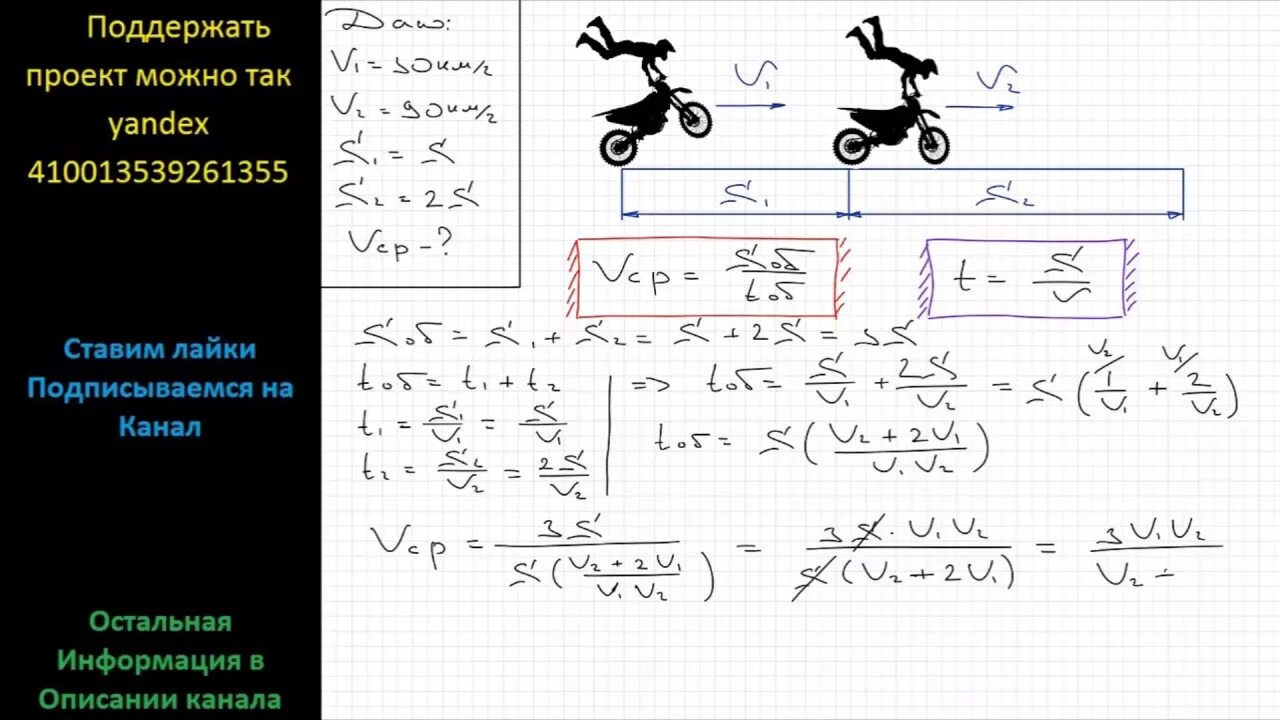 Поддержать
проект можно так
yandex
410013539261355
Ставим лайки
Подписываемся на
Канал
Остальная
Информация в
Описании канала
Дано:
V₁ = 30 км/г
V₂ = 90 км/г
S₁ = S
S₂ = 2S
Vср - ?
V₁
V₂
S₁
S₂
Vср = Sоб / tоб
t = S / V
Sоб = S₁ + S₂ = S + 2S = 3S
tоб = t₁ + t₂
t₁ = S₁/V₁ = S/V₁
t₂ = S₂/V₂ = 2S/V₂
=> tоб = S/V₁ + 2S/V₂ = S (V₂/ 1/V₁ + V₁/ 2/V₂)
tоб = S ((V₂ + 2V₁) / V₁V₂)
Vср = 3S / S((V₂ + 2V₁) / V₁V₂) = 3S · V₁V₂ / S(V₂ + 2V₁) = 3V₁V₂ / V₂ +